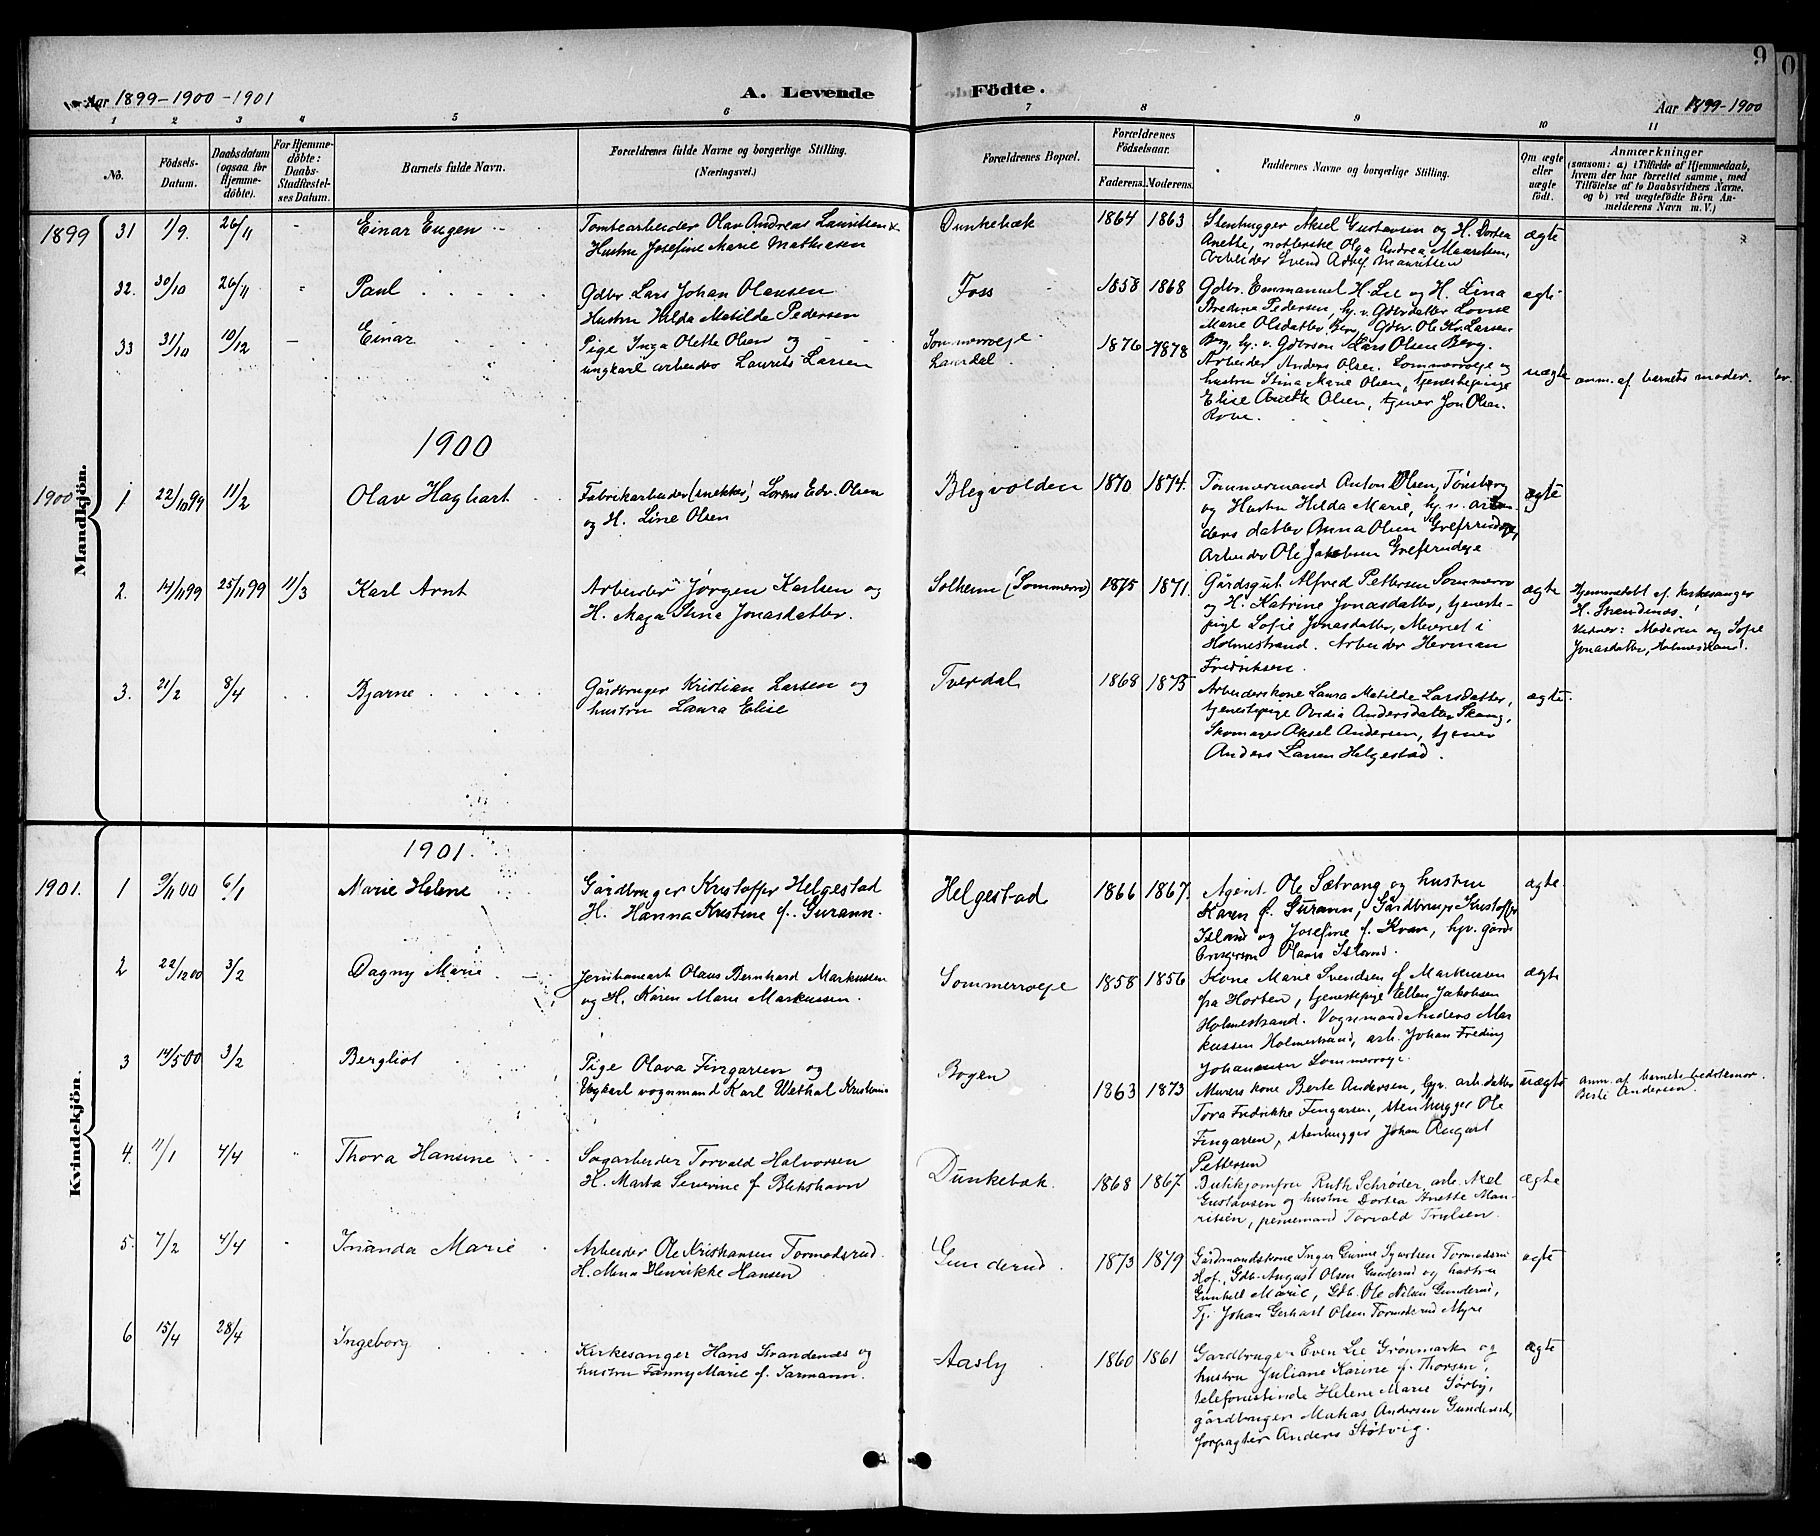 9
Aar 1899-1900-1901
A. Levende Födte.
Aar 1899-1900
1 2 3 4 5 6 7 8 9 10 11
No.
Födsels-Datum.
Daabsdatum (ogsaa for Hjemmedöbte).
For Hjemmedöbte: Daabs-Stadfæstelses Datum.
Barnets fulde Navn.
Forældrenes fulde Navne og borgerlige Stilling. (Næringsvei.)
Forældrenes Bopæl.
Forældrenes Födselsaar.
Faderens. Moderens.
Faddernes Navne og borgerlige Stilling.
Om ægte eller uægte födt.
Anmærkninger
(saasom: a) i Tilfælde af Hjemmedaab, hvem der har forrettet samme, med Tilföielse af to Daabsvidners Navne. og b) ved uægtefödte Börn Anmelderens Navn m. V.)
Mandkjön.
1899 31 1/9. 26/11 - Einar Eugen
Tomtearbeider Olav Andreas Lauritsen
Hustru Josefine Marie Mathiesen
Dunkebæk 1864 1863
Stenhugger Aksel Gustavsen og H. Dortea
Anette, Olga Andrea Mauritsen,
Arbeider Svend Adolf Mauritsen
ægte
32. 30/10 26/11 Paul
Gdbr Lars Johan Olausen
Hustru Hilda Matilde Pedersen
Foss 1858 1868
Gdbr. Emmanuel H. Lie og H. Lina
Bredine Pedersen, hj. v. Gdbrdatter Lovise
Marie Olsdatter Berg, Gdbr. Ole Kr. Larsen
Berg, hj. v. Gdbrsøn Lars Olsen Berg.
ægte
33 31/10 10/12 - Einar
Pige Inga Olette Olsen og
ungkarl arbeider Laurits Larsen
Sommerroeje
Laurdal
1876 1878
Arbeider Anders Olsen. Sommerroeje og
hustru Stina Marie Olsen, tjenestepige
Elise Anette Olsen, tjener Jon Olsen
uægte anm. af barnets moder.
1900
1900 1 22/10 99 11/2 Olav Haghart
Fabrikarbeider (snekker) Lorens Edv. Olsen
og H. Line Olsen
Blegvolden 1870 1874.
Tømmermand Anton Olsen, Tønsberg
og Hustru Hilda Marie, hj. v. arbeiders
datter Anna Olsen Grefsrudeje,
Arbeider Ole Jakobsen Grefsrudeje
ægte
2. 14/11 99 25/11 99 11/3 Karl Arnt
Arbeider Jørgen Karlsen og
H. Maja Stina Jonasdatter.
Solheim (Sommerro) 1875 1871.
Gårdsgut Alfred Pettersen Sommerro
og H. Katrine Jonasdatter, tjenestepige
Sofie Jonasdatter, Meieriet i
Holmestrand. Arbeider Herman
Fredriksen.
ægte
Hjemmedøbt af kirkesanger
H. Strandenæs.
Vidner: Moderen og Sofie
Jonasdatter, Holmestrand.
3. 21/2 8/4 Bjarne
Gårdbruger Kristian Larsen og
hustru Laura Elise
Tverdal 1868 1875
Arbeiderskone Laura Matilde Larsdatter,
tjenestepige Ovidia Andersdatter Skaug,
Skomager Aksel Andersen, tjener
Anders Larsen Helgestad.
ægte.
Kvindekjön.
1901.
1901. 1 9/11 00 6/1 Marie Helene
Gårdbruger Kristoffer Helgestad
H. Hanna Kristine f. Gurann.
Helgestad 1866 1867.
Agent Ole Sætrang og hustru
Karen f. Gurann, Gårdbruger Kristoffer
Island og Josefine f. Kvan, hjv. gårdbrugersøn
Olaus Island.
ægte.
2 22/12 00 3/2 Dagny Marie
Jernbanearb Olaus Bernhard Markussen
og H. Karen Marie Markussen.
Sommerroeje 1858 1856
Kone Marie Svendsen f. Markussen
fra Horten, tjenestepige Ellen Jakobsen
Holmestrand. Vognmand Anders Markussen
Holmestrand, arb. Johan Freding
Johannesen Sommerroeje.
ægte
3 14/5 00 3/2 Bergliot
Pige Olava Fingarsen og
Ungkarl vognmand Karl Wethal Kristiania
Bogen 1863 1873
Murers kone Berte Andersen, hjv. arb.datter
Tora Fredrikke Fingarsen, stenhugger Ole
Fingarsen, stenhugger Johan August
Pettersen
uægte anm. af barnets bedstemor
Berte Andersen
4. 11/1 4/4 Thora Hansine
Sagarbeider Torvald Halvorsen
H. Marta Severine f. Blekshavn
Dunkebæk. 1868 1867.
Butikjomfru Ruth Schrøder, arb. Aksel
Gustavsen og hustru Dortea Anette Mauritsen,
Torvald Trulsen.
ægte
5. 7/2 4/4 Inanda Marie
Arbeider Ole Kristiansen Tormodsrud.
H. Mina Henrikke Hansen
Gunderud. 1873 1879
Gårdmandskone Inger Gurine Syvertsen Tormodsrud
Hof. Gdb. August Olsen Gunderud og hustru
Gunhild Marie, Gdb. Ole Nilsen Gunderud,
Tj. Johan Gerhart Olsen Tormodsrud Myre
ægte
6 15/4 28/4 Ingeborg
Kirkesanger Hans Strandenæs og
hustru Fanny Marie f. Sarmann.
Aasly 1860 1861
Gårdbruger Even Lie Grønmark og
hustru Juliane Karine f. Thorsen,
telefonistinde Helene Marie Sørby,
gårdbruger Makas Andersen Gunderud,
forpagter Anders Støtvig.
ægte